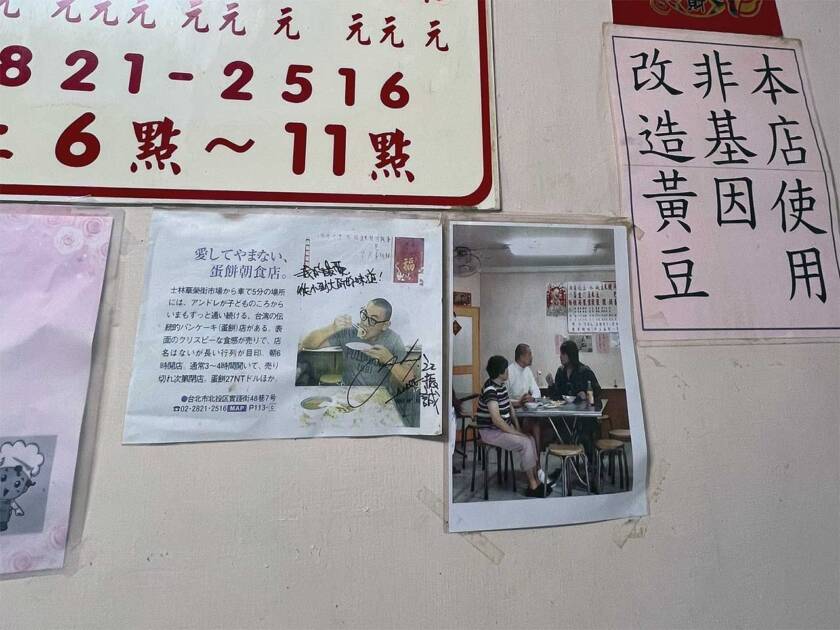 元 元元 元元 元 元元 元
821-2516
6點～11點
本店使用
非基因
改造黃豆
愛してやまない、
蛋餅朝食店。
士林華榮街市場から車で5分の場所
には、アンドレが子どものころから
いまもずっと通い続ける、台湾の伝
統的パンケーキ(蛋餅)店がある。表
面のクリスピーな食感が売りで、店
名はないが長い行列が目印。朝6
時開店、通常3〜4時間開いて、売り
切れ次第閉店。蛋餅27NTドルほか。
●台北市北投区實踐街48巷7号
☎02-2821-2516 MAP P113-
福
江振誠